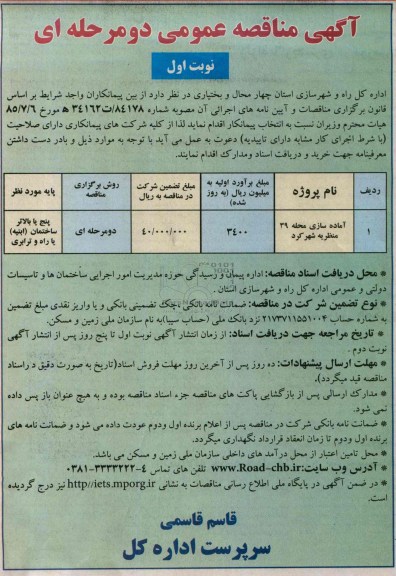 آگهی مناقصه عمومی دومرحله ای
نوبت اول
اداره کل راه و شهرسازی استان چهار محال و بختیاری در نظر دارد از بین پیمانکاران واجد شرایط بر اساس
قانون برگزاری مناقصات و آیین نامه های اجرائی آن مصوبه شماره ۸۴۱۷۸/ت۳۴۱۶۲ ه مورخ ۸۵/۷/۶
هیات محترم وزیران نسبت به انتخاب پیمانکار اقدام نماید لذا از کلیه شرکت های پیمانکاری دارای صلاحیت
(با شرط اجرای کار مشابه دارای تاییدیه) دعوت به عمل می آید با توجه به موارد ذیل و بادر دست داشتن
معرفینامه جهت خرید و دریافت اسناد ومدارک اقدام نمایند.
ردیف نام پروژه مبلغ برآورد اولیه به میلیون ریال (به روز شده) مبلغ تضمین شرکت در مناقصه به ریال روش برگزاری مناقصه پایه مورد نظر
۱ آماده سازی محله ۳۹ منظریه شهرکرد ۳۴۰۰ ۴۰/۰۰۰/۰۰۰ دومرحله ای پنج یا بالاتر ساختمان (ابنیه) یا راه و ترابری
* محل دریافت اسناد مناقصه: اداره پیمان و رسیدگی حوزه مدیریت امور اجرایی ساختمان ها و تاسیسات
دولتی و عمومی اداره کل راه و شهرسازی استان .
* نوع تضمین شرکت در مناقصه: ضمانت نامه بانکی ،چک تضمینی بانکی و یا واریز نقدی مبلغ تضمین
به شماره حساب ۲۱۷۳۷۱۱۵۵۱۰۰۴ نزد بانک ملی (حساب سیبا)به نام سازمان ملی زمین و مسکن.
* تاریخ مراجعه جهت دریافت اسناد: از زمان انتشار آگهی نوبت اول تا پنج روز پس از انتشار آگهی
نوبت دوم .
* مهلت ارسال پیشنهادات: ده روز پس از آخرین روز مهلت فروش اسناد(تاریخ به صورت دقیق در اسناد
مناقصه قید میگردد).
* مدارک ارسالی پس از بازگشایی پاکت های مناقصه جزء اسناد مناقصه بوده و به هیچ عنوان باز پس داده
نمی شود.
* ضمانت نامه بانکی شرکت در مناقصه پس از اعلام برنده اول ودوم عودت داده می شود و ضمانت نامه های
برنده اول ودوم تا زمان انعقاد قرارداد نگهداری میگردد.
* محل تامین اعتبار از محل درآمد های داخلی سازمان ملی زمین و مسکن می باشد.
* آدرس وب سایت:www.Road-chb.ir تلفن های تماس ۴-۳۳۳۳۲۲۲-۰۳۸۱
* در ضمن آگهی در پایگاه ملی اطلاع رسانی مناقصات به نشانی http//iets.mporg.ir نیز درج گردیده
است.
قاسم قاسمی
سرپرست اداره کل